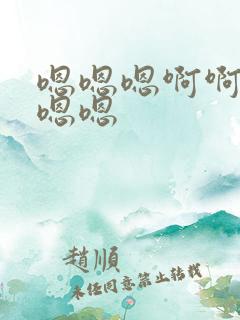 嗯嗯嗯啊啊
嗯嗯
趙順
未经同意禁止转载